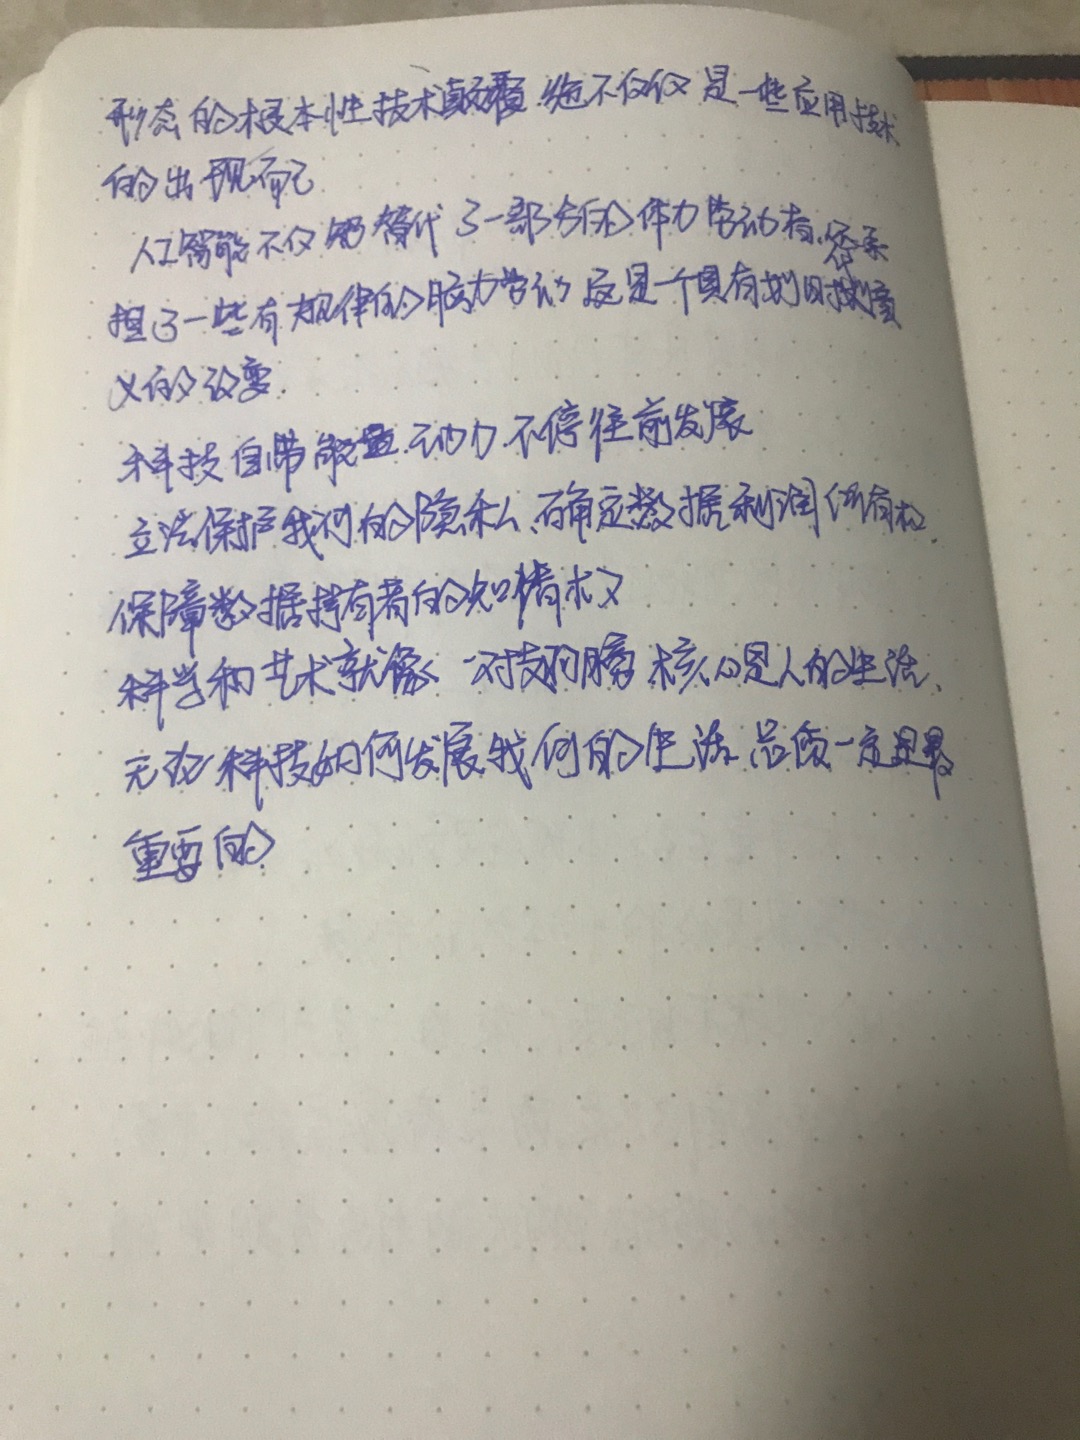 形态的根本性技术颠覆 绝不仅仅是一些应用技术
的出现而已
人工智能不仅 替代了一部分的体力劳动者,承
担了一些有规律的脑力劳动 这是一个具有划时代意
义的改变.
科技自带能量、动力 不停往前发展
立法保护我们的隐私、确定数据利润所有权.
保障数据持有者的知情权
科学和艺术就像一对 核心是人的生活、
无论科技如何发展我们的生活品质一定是最
重要的